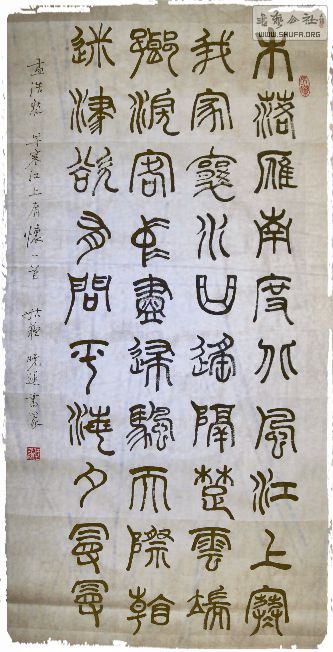 書藝公社
WWW.SHUFA.ORG
木落雁南度北風江上寒
我家襄水曲遙隔楚雲端
鄉淚客中盡歸颿天際看
迷津欲有問平海夕曼曼
孟浩然 早寒江上有懷一首